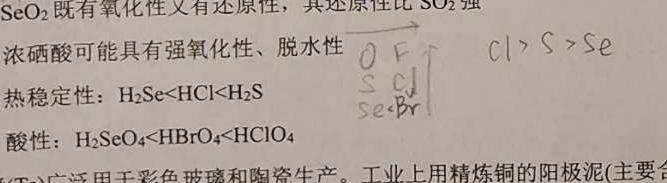 SeO₂ 既有氧化性又有还原性，其还原性比 SO₂ 强
浓硒酸可能具有强氧化性、脱水性
O F
Cl > S > Se
S Cl
Se<Br
热稳定性：H₂Se<HCl<H₂S
酸性：H₂SeO₄<HBrO₄<HClO₄
广泛用于彩色玻璃和陶瓷生产。工业上用精炼铜的阳极泥(主要含